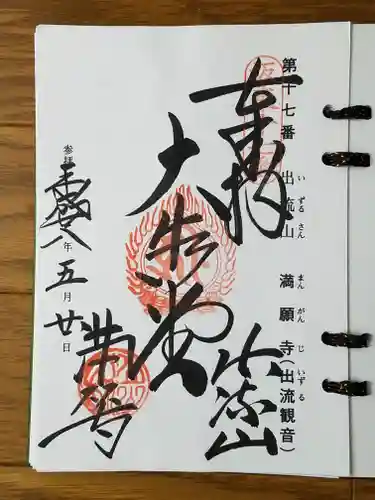 第十七番 出流山 満願寺(出流観音)
いずるさん まんがんじ いずる
奉拝
出流山
大悲堂
満願寺
参拝 令和八年 五月 廿日